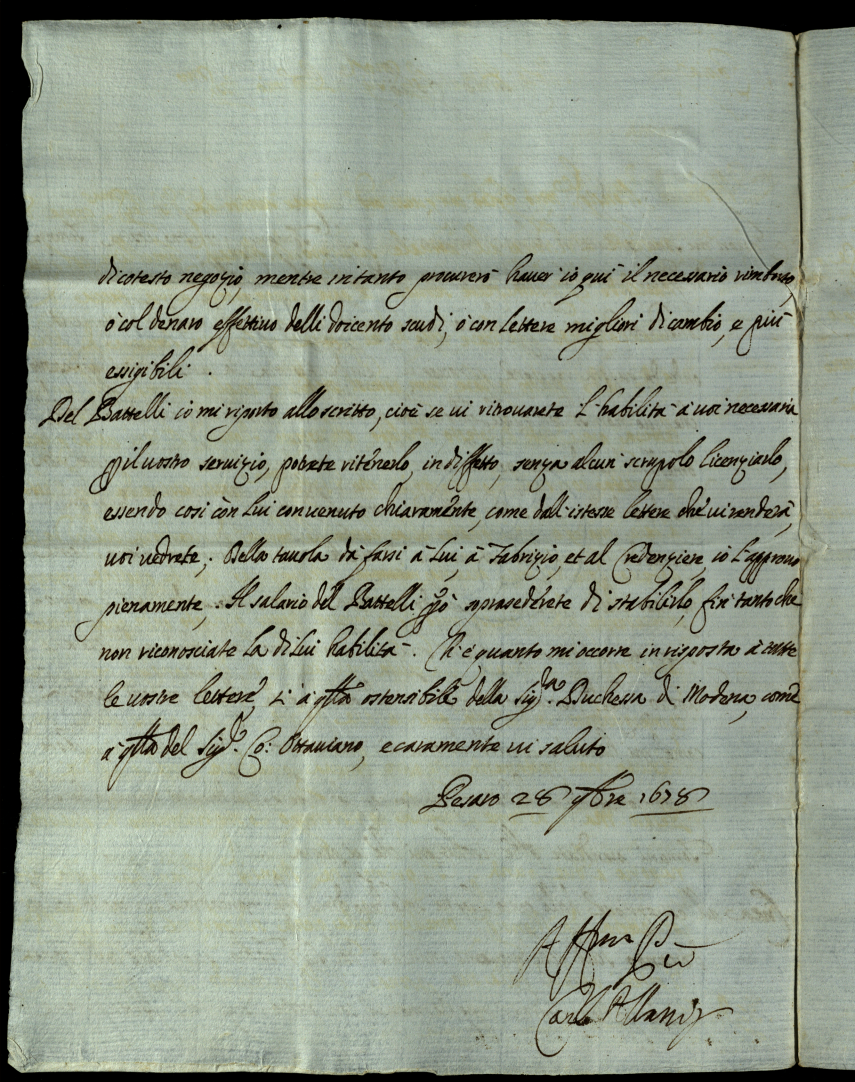 di cotesto negozio, mentre intanto procurerò hauer io quì il necessario rimborso,
ò col denaro effettiuo delli doicento scudi, ò con lettere migliori di cambio, e più
essigibili.
Del Battelli io mi riporto allo scritto, cioè se ui ritrouarete l'habilità à uoi necessaria
p il uostro seruizio, potrete ritenerlo, in diffetto, senza alcun scrupolo licenziarlo,
essendo così con lui conuenuto chiaramente, come dall'istesse lettere che ui renderà,
uoi uedrete. Della tauola da farsi à lui, à Fabrizio, et al Credenziere, io l'approuo
pienamente. Il salario del Battelli però soprasederete di stabilirlo, fin tanto che
non riconosciate la di lui habilità. Ch'è quanto mi occorre in risposta à tutte
le uostre lettere, sì à qlla ostensibile della Sigra. Duchessa di Modena, come
à qlla del Sigr. Co: Ottauiano, e caramente ui saluto
Pesaro 28 9bre 1678
Affmo
Carlo Albani